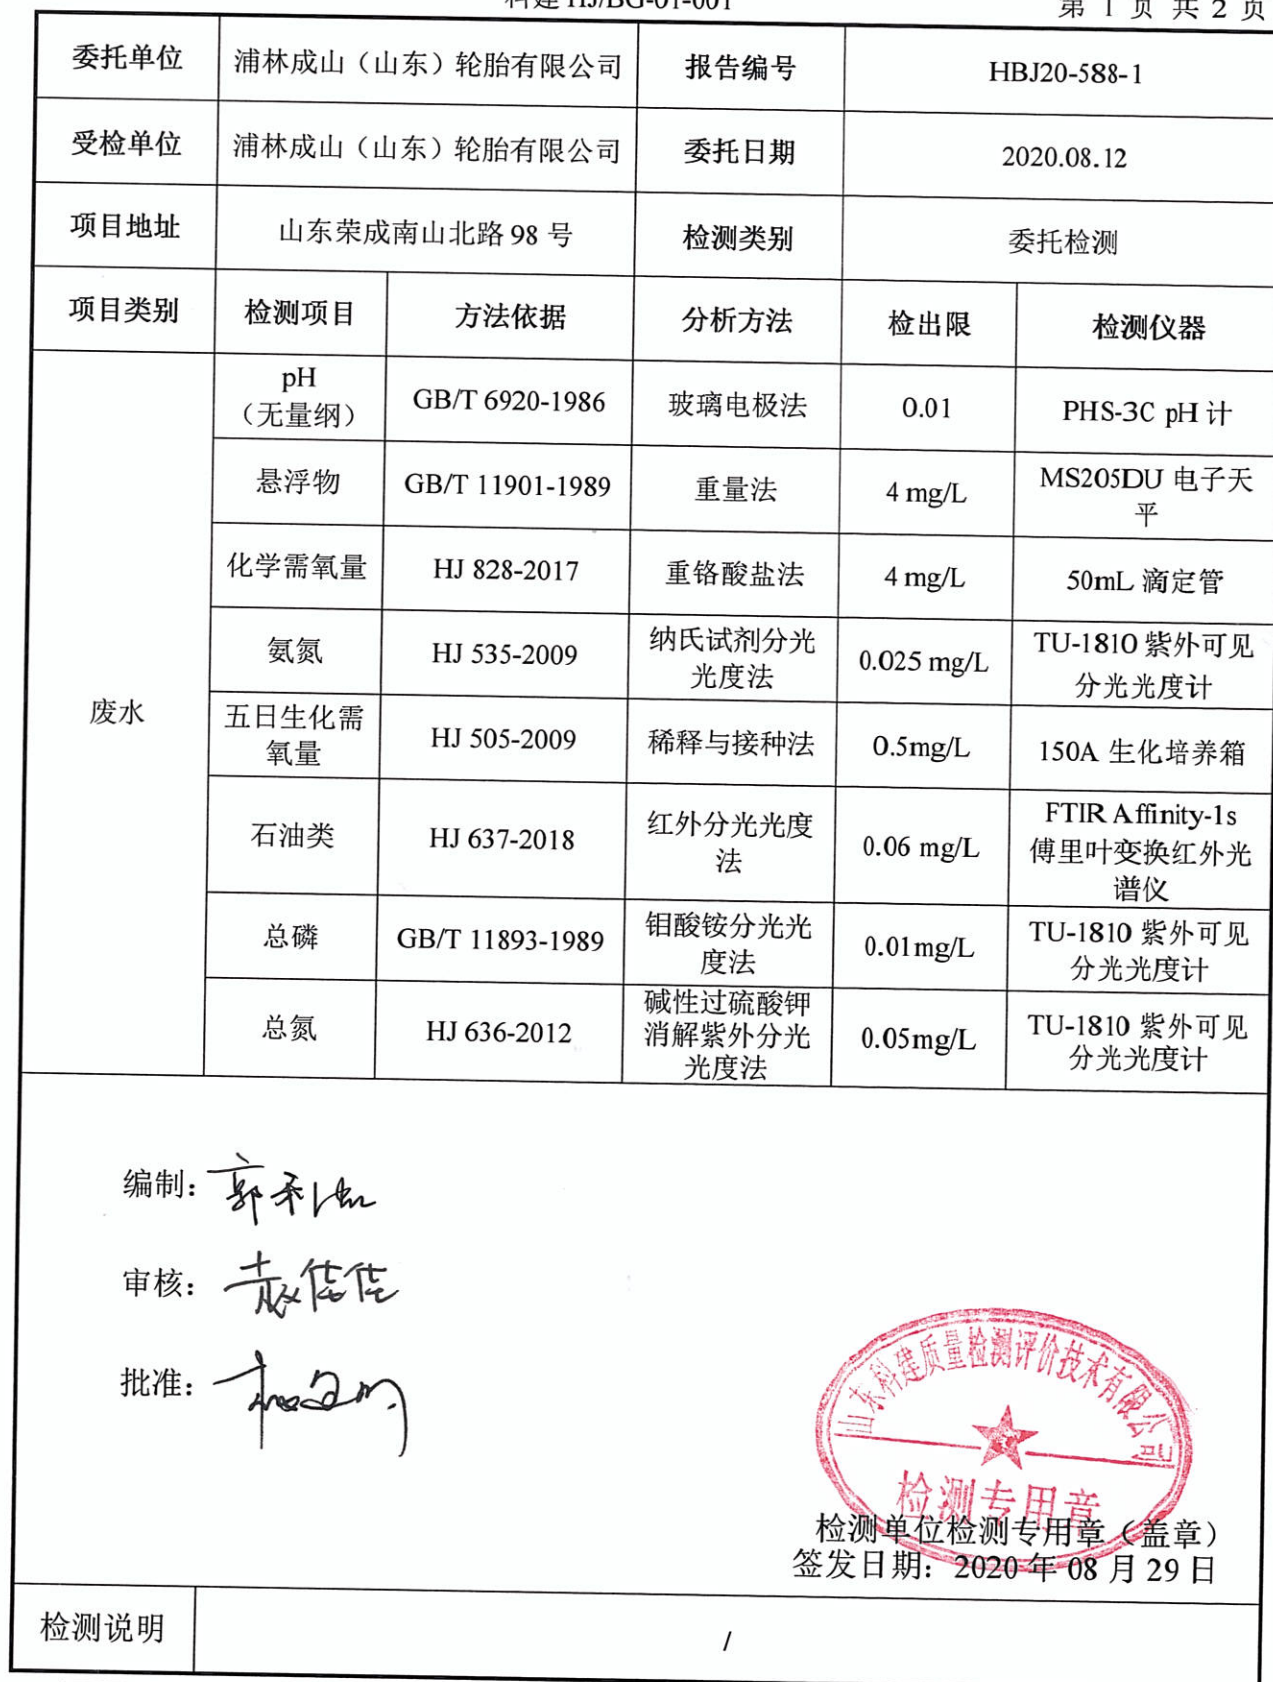 科建 HJ/BG-01-001
第 1 页 共 2 页
委托单位 浦林成山（山东）轮胎有限公司 报告编号 HBJ20-588-1
受检单位 浦林成山（山东）轮胎有限公司 委托日期 2020.08.12
项目地址 山东荣成南山北路 98 号 检测类别 委托检测
项目类别 检测项目 方法依据 分析方法 检出限 检测仪器
废水
pH
（无量纲）
GB/T 6920-1986
玻璃电极法
0.01
PHS-3C pH 计
悬浮物
GB/T 11901-1989
重量法
4 mg/L
MS205DU 电子天
平
化学需氧量
HJ 828-2017
重铬酸盐法
4 mg/L
50mL 滴定管
氨氮
HJ 535-2009
纳氏试剂分光
光度法
0.025 mg/L
TU-1810 紫外可见
分光光度计
五日生化需
氧量
HJ 505-2009
稀释与接种法
0.5mg/L
150A 生化培养箱
石油类
HJ 637-2018
红外分光光度
法
0.06 mg/L
FTIR Affinity-1s
傅里叶变换红外光
谱仪
总磷
GB/T 11893-1989
钼酸铵分光光
度法
0.01mg/L
TU-1810 紫外可见
分光光度计
总氮
HJ 636-2012
碱性过硫酸钾
消解紫外分光
光度法
0.05mg/L
TU-1810 紫外可见
分光光度计
编制：
审核：
批准：
山东科建质量检测评价技术有限公司
检测专用章
检测单位检测专用章（盖章）
签发日期：2020 年 08 月 29 日
检测说明 /